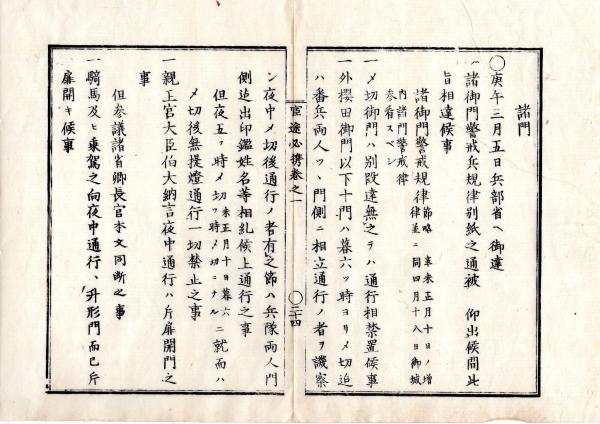 諸門
○庚午三月五日兵部省ヘ御達
一諸御門警戒兵規律別紙之通被　仰出候間此
旨相達候事
諸御門警戒規律 節略　辛未正月十日ノ増
律並ニ同四月十八日御城
内諸門警戒律
参看スベシ
一〆切御門ハ別段達無之ヲハ通行相禁置候事
一外櫻田御門以下十門ハ暮六ツ時ヨリ〆切迠
ハ番兵両人ツヽ門側ニ相立通行ノ者ヲ譏察
宦途必携巻之一
○二十四
ン夜中〆切後通行ノ者有之節ハ兵隊両人門
側迠出印鑑姓名等相糺候上通行之事
但夜五ツ時〆切 未正月十日暮六
ツ時〆切ニナル ニ就而ハ
〆切後無提燈通行一切禁止之事
一親王宮大臣伯大納言夜中通行ハ片扉開門之
事
但参議諸省卿長官本文同断之事
一騎馬及ヒ乗駕之向夜中通行、升形門而已片
扉開キ候事